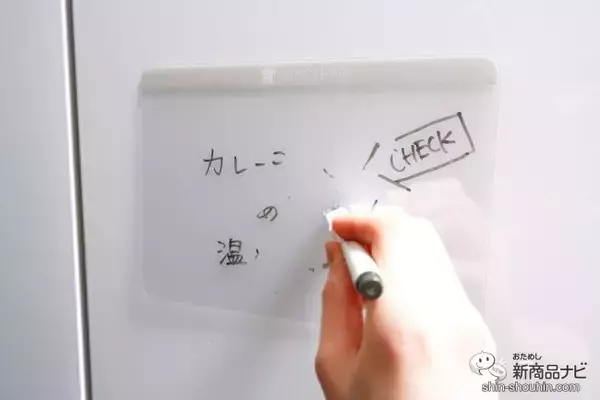 カレーこ
CHECK
め
温
おためし
新商品ナビ
shin-shouhin.com